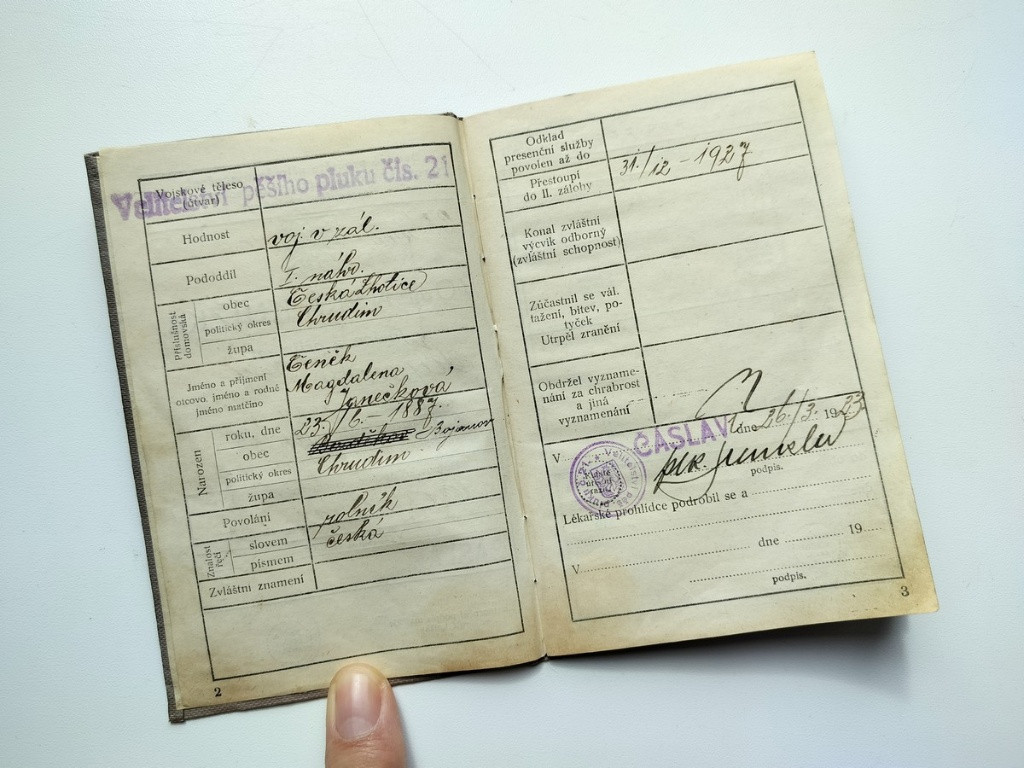 Vojskové těleso
(útvar)
Velitelství pěšího pluku čís. 21
Hodnost
voj. v zál.
Pododdíl
I. náhr.
Příslušnost domovská
obec
Česká Lhotice
politický okres
Chrudim
župa
Jméno a příjmení
otcovo, jméno a rodné
jméno matčino
Čeněk
Magdalena
Janečková
Narozen
roku, dne
23./6. – 1887.
obec
Bojanov
politický okres
Chrudim
župa
Povolání
rolník
Znalost řeči
slovem
česká
písmem
Zvláštní znamení
2
Odklad
presenční služby
povolen až do
Přestoupí
do II. zálohy
31./12 – 1927
Konal zvláštní
výcvik odborný
(zvláštní schopnost)
Zúčastnil se vál.
tažení, bitev, po-
tyček
Utrpěl zranění
Obdržel vyzname-
nání za chrabrost
a jiná
vyznamenání
V ČÁSLAVI dne 26./3. 1923
plk.
podpis.
Lékařské prohlídce podrobil se a
V dne 19
podpis.
3